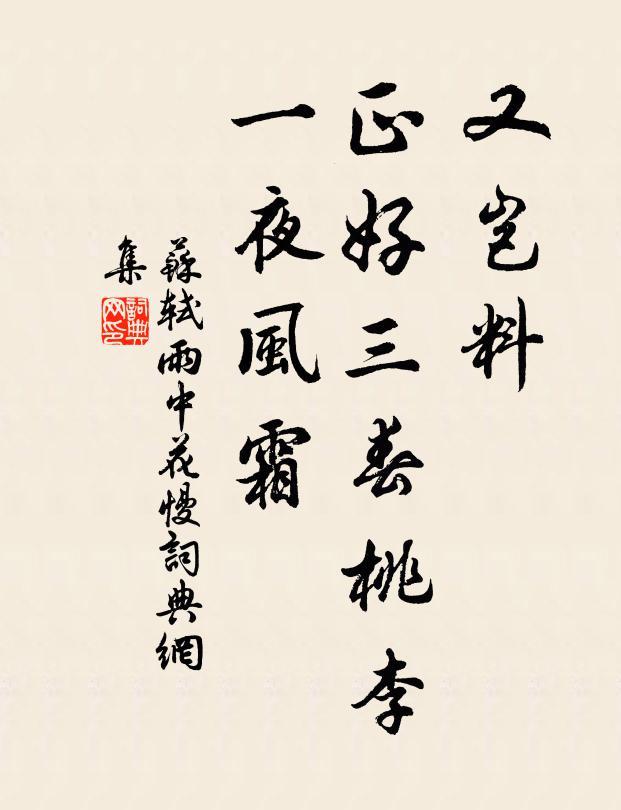 又豈料
正好三春桃李
一夜風霜
蘇軾雨中花慢詞典網
集
詞典
网印